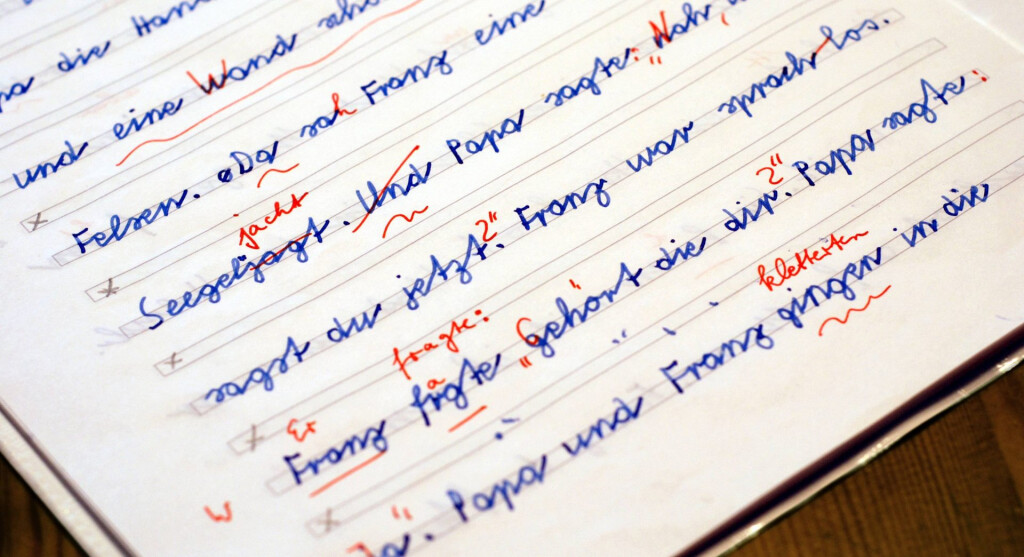 die Hand
und eine Wand
Felsen. Da sah Franz eine
jacht
Seegeljagt. Und Papa sagte: "Nah,
sagst du jetzt?" Franz war sprachlos.
Er fragte:
Franz frgte "Gehört die dir?" Papa sagte:
W
kletterten
"Ja". Papa und Franz gingen in die